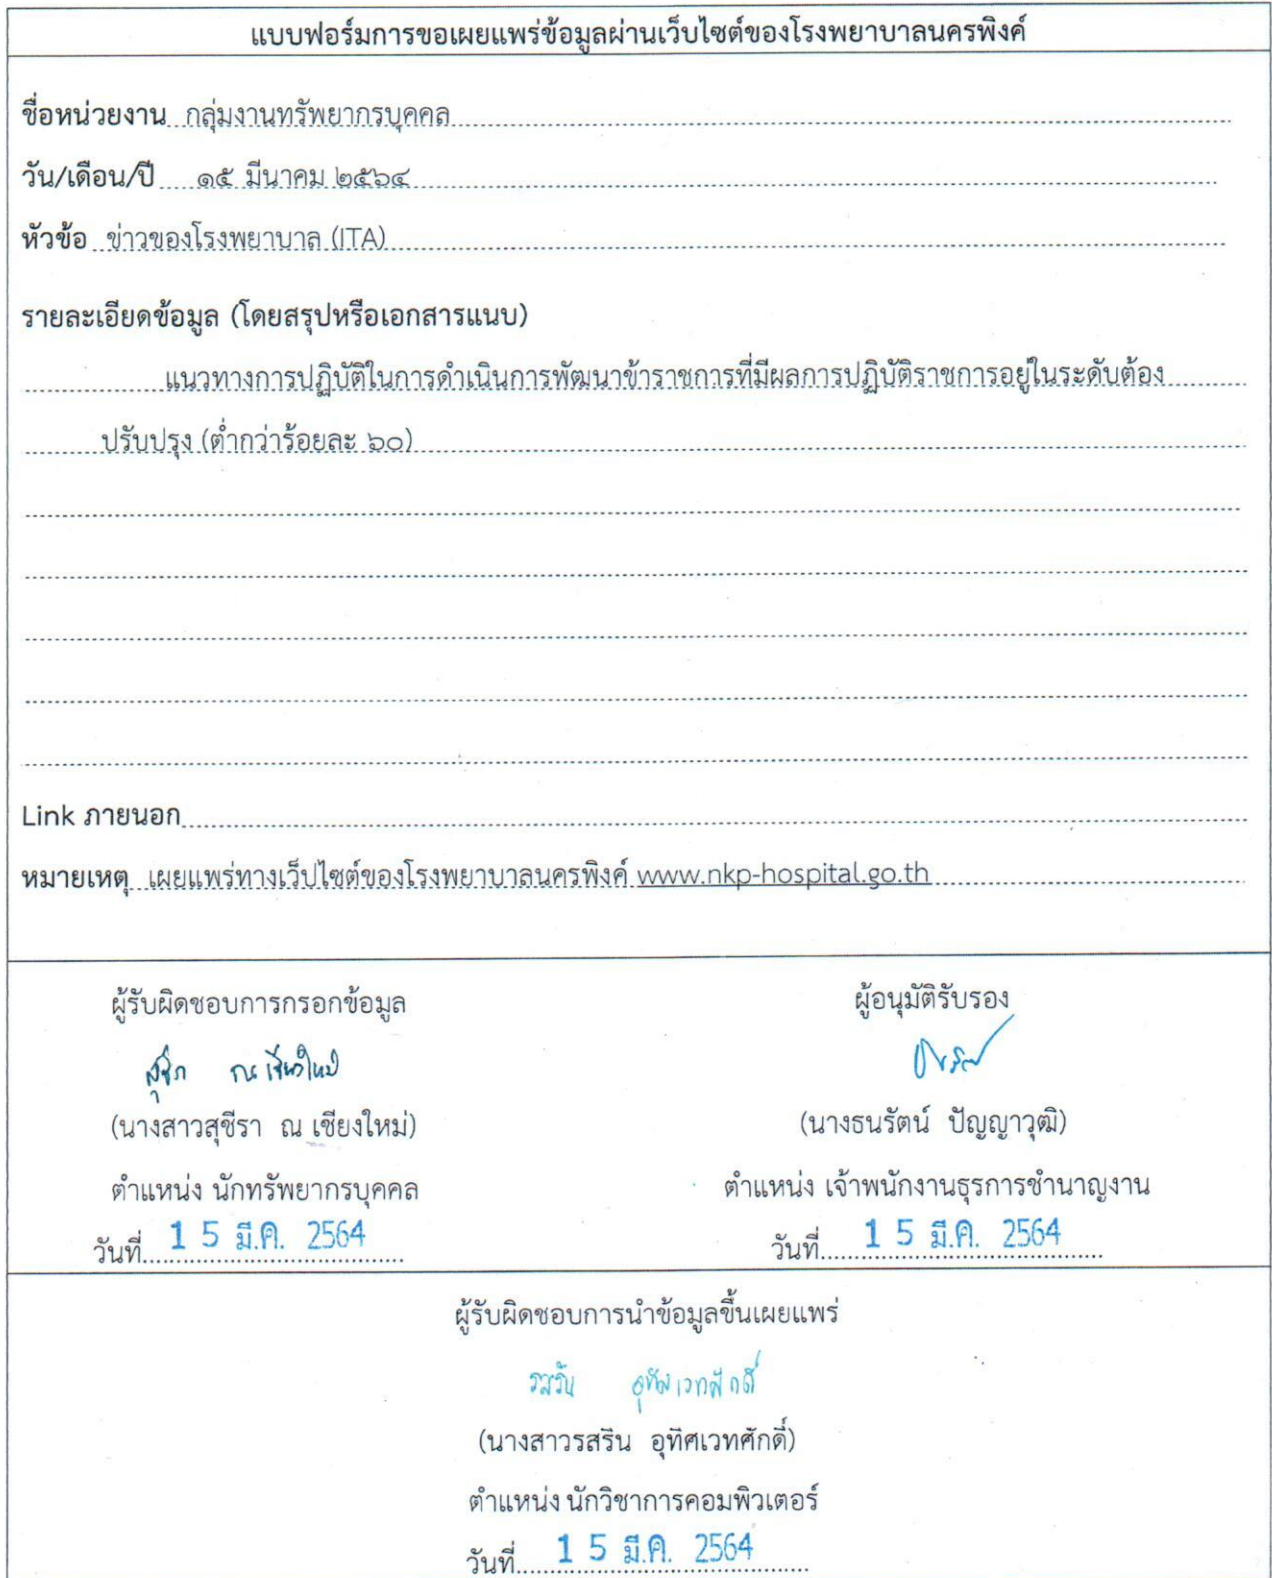 แบบฟอร์มการขอเผยแพร่ข้อมูลผ่านเว็บไซต์ของโรงพยาบาลนครพิงค์
ชื่อหน่วยงาน กลุ่มงานทรัพยากรบุคคล
วัน/เดือน/ปี ๑๕ มีนาคม ๒๕๖๔
หัวข้อ ข่าวของโรงพยาบาล (ITA)
รายละเอียดข้อมูล (โดยสรุปหรือเอกสารแนบ)
แนวทางการปฏิบัติในการดำเนินการพัฒนาข้าราชการที่มีผลการปฏิบัติราชการอยู่ในระดับต้อง
ปรับปรุง (ต่ำกว่าร้อยละ ๖๐)
Link ภายนอก
หมายเหตุ เผยแพร่ทางเว็ปไซต์ของโรงพยาบาลนครพิงค์ www.nkp-hospital.go.th
ผู้รับผิดชอบการกรอกข้อมูล
สุชีรา ณ เชียงใหม่
(นางสาวสุชีรา ณ เชียงใหม่)
ตำแหน่ง นักทรัพยากรบุคคล
วันที่ 1 5 มี.ค. 2564
ผู้อนุมัติรับรอง
(นางธนรัตน์ ปัญญาวุฒิ)
ตำแหน่ง เจ้าพนักงานธุรการชำนาญงาน
วันที่ 1 5 มี.ค. 2564
ผู้รับผิดชอบการนำข้อมูลขึ้นเผยแพร่
รสริน อุทิศเวทศักดิ์
(นางสาวรสริน อุทิศเวทศักดิ์)
ตำแหน่ง นักวิชาการคอมพิวเตอร์
วันที่ 1 5 มี.ค. 2564